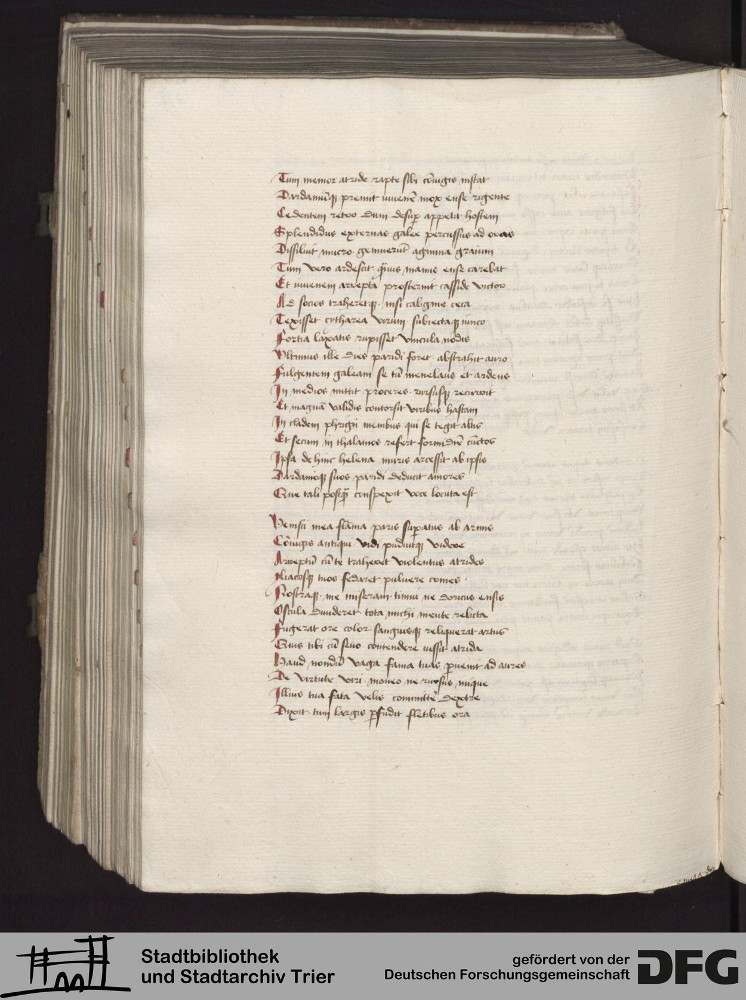 Tum memor atride rapte sibi cōiugis instat
Dardaniūqꝫ premit iuuenē mox ense rigente
Cedentem retro dum desuꝑ appetit hostem
Splendidus externas galee percussus ad oras
Dissiluit mucro gemuerūt agmina graium
Tum vero ardescit qūis manus ense carebat
Et iuuenem arrepta prosternit casside victor
Ad socios traheretqꝫ nisi caligine ceca
Texisset cytharea virum subiectaqꝫ iunco
Fortia laxatis rupisset vincula nodis
Vltimus ille dies paridi foret abstrahit auro
Fulgentem galeam se tū menelaus et ardens
In medios mittit proceres rursusqꝫ recurrit
Et magnā validis contorsit viribus hastam
In cladem phrigii nimbus qui se tegit altis
Et secum in thalamos refert cūctos
Ipsa dehinc helena muris arcessit ab ipsis
Dardaniosqꝫ suos paridi deducit amores
Que tali postqꝫ conspexit voce locuta est
Venisti mea flāma paris suꝑatus ab armis
Cōiugis antiqui vidi puduitqꝫ videre
Arreptū cū te traheret violentus atrides
Iliacosqꝫ tuos fedaret puluere comes
Nostraqꝫ me miseram timui ne doricus ensis
Oscula diuideret tota michi mente relicta
Fugerat ore color sanguisqꝫ reliquerat artus
Quis tibi cū seuo contendere iussit atrida
Haud nondū vaga fama tuas ꝑuenit ad aures
De virtute viri moneo ne rursus inique
Illius tua fata velis committē dextre
Dixit tum largis ꝑfudit fletibus ora
Stadtbibliothek
und Stadtarchiv Trier
gefördert von der
Deutschen Forschungsgemeinschaft
DFG